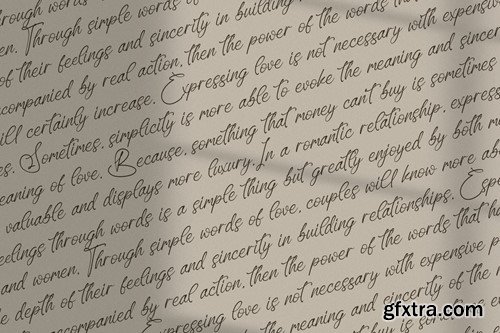 through words
men. Through simple words of
of their feelings and sincerity in building
accompanied by real action, then the power of the words that
will certainly increase. Expressing love is not necessary with expensive
es. Sometimes, simplicity is more able to evoke the meaning and sincer
eaning of love. Because, something that money can't buy is sometimes
valuable and displays more luxury. In a romantic relationship, express
eelings through words is a simple thing but greatly enjoyed by both m
and women. Through simple words of love, couples will know more abo
e depth of their feelings and sincerity in building relationships. Espe
accompanied by real action, then the power of the words that h
Expressing love is not necessary with expensive p
the meaning and sincerity of the
buy is sometimes
gfxtra.com